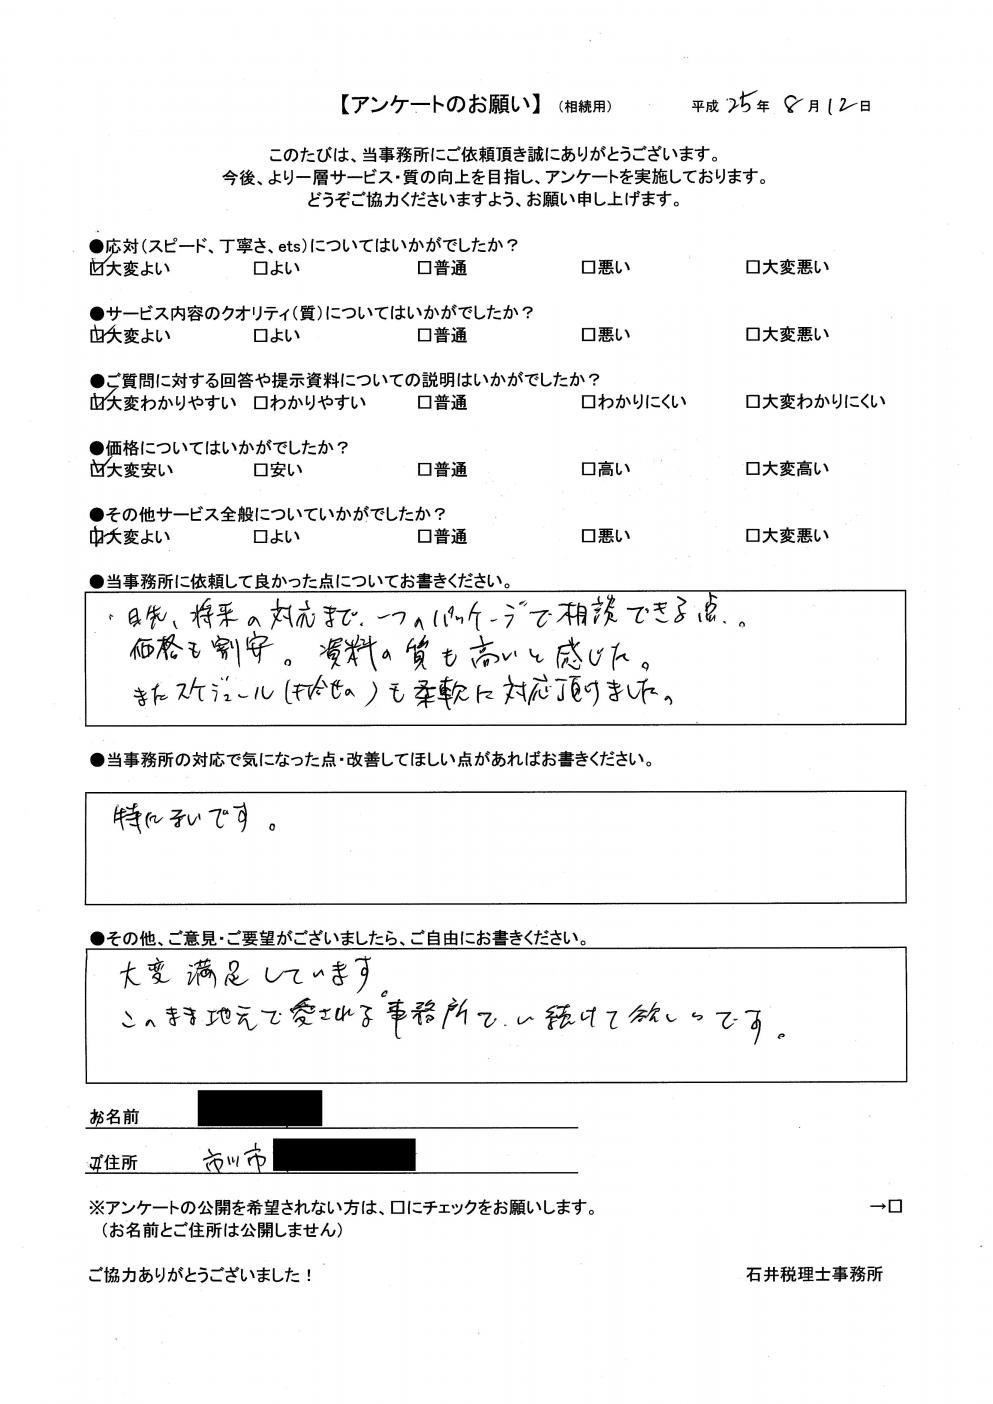 【アンケートのお願い】（相続用） 平成 25年 8月12日
このたびは、当事務所にご依頼頂き誠にありがとうございます。
今後、より一層サービス・質の向上を目指し、アンケートを実施しております。
どうぞご協力くださいますよう、お願い申し上げます。
●応対（スピード、丁寧さ、ets）についてはいかがでしたか？
☑大変よい □よい □普通 □悪い □大変悪い
●サービス内容のクオリティ（質）についてはいかがでしたか？
☑大変よい □よい □普通 □悪い □大変悪い
●ご質問に対する回答や提示資料についての説明はいかがでしたか？
☑大変わかりやすい □わかりやすい □普通 □わかりにくい □大変わかりにくい
●価格についてはいかがでしたか？
☑大変安い □安い □普通 □高い □大変高い
●その他サービス全般についていかがでしたか？
☑大変よい □よい □普通 □悪い □大変悪い
●当事務所に依頼して良かった点についてお書きください。
・目先、将来の対応まで、一つのパッケージで相談できる点。
価格も割安。資料の質も高いと感じた。
またスケジュール（打合せの）も柔軟に対応頂けました。
●当事務所の対応で気になった点・改善してほしい点があればお書きください。
特にないです。
●その他、ご意見・ご要望がございましたら、ご自由にお書きください。
大変満足しています。
このまま地元で愛される事務所でい続けて欲しいです。
お名前
ご住所 市川市
※アンケートの公開を希望されない方は、□にチェックをお願いします。 →□
（お名前とご住所は公開しません）
ご協力ありがとうございました！ 石井税理士事務所